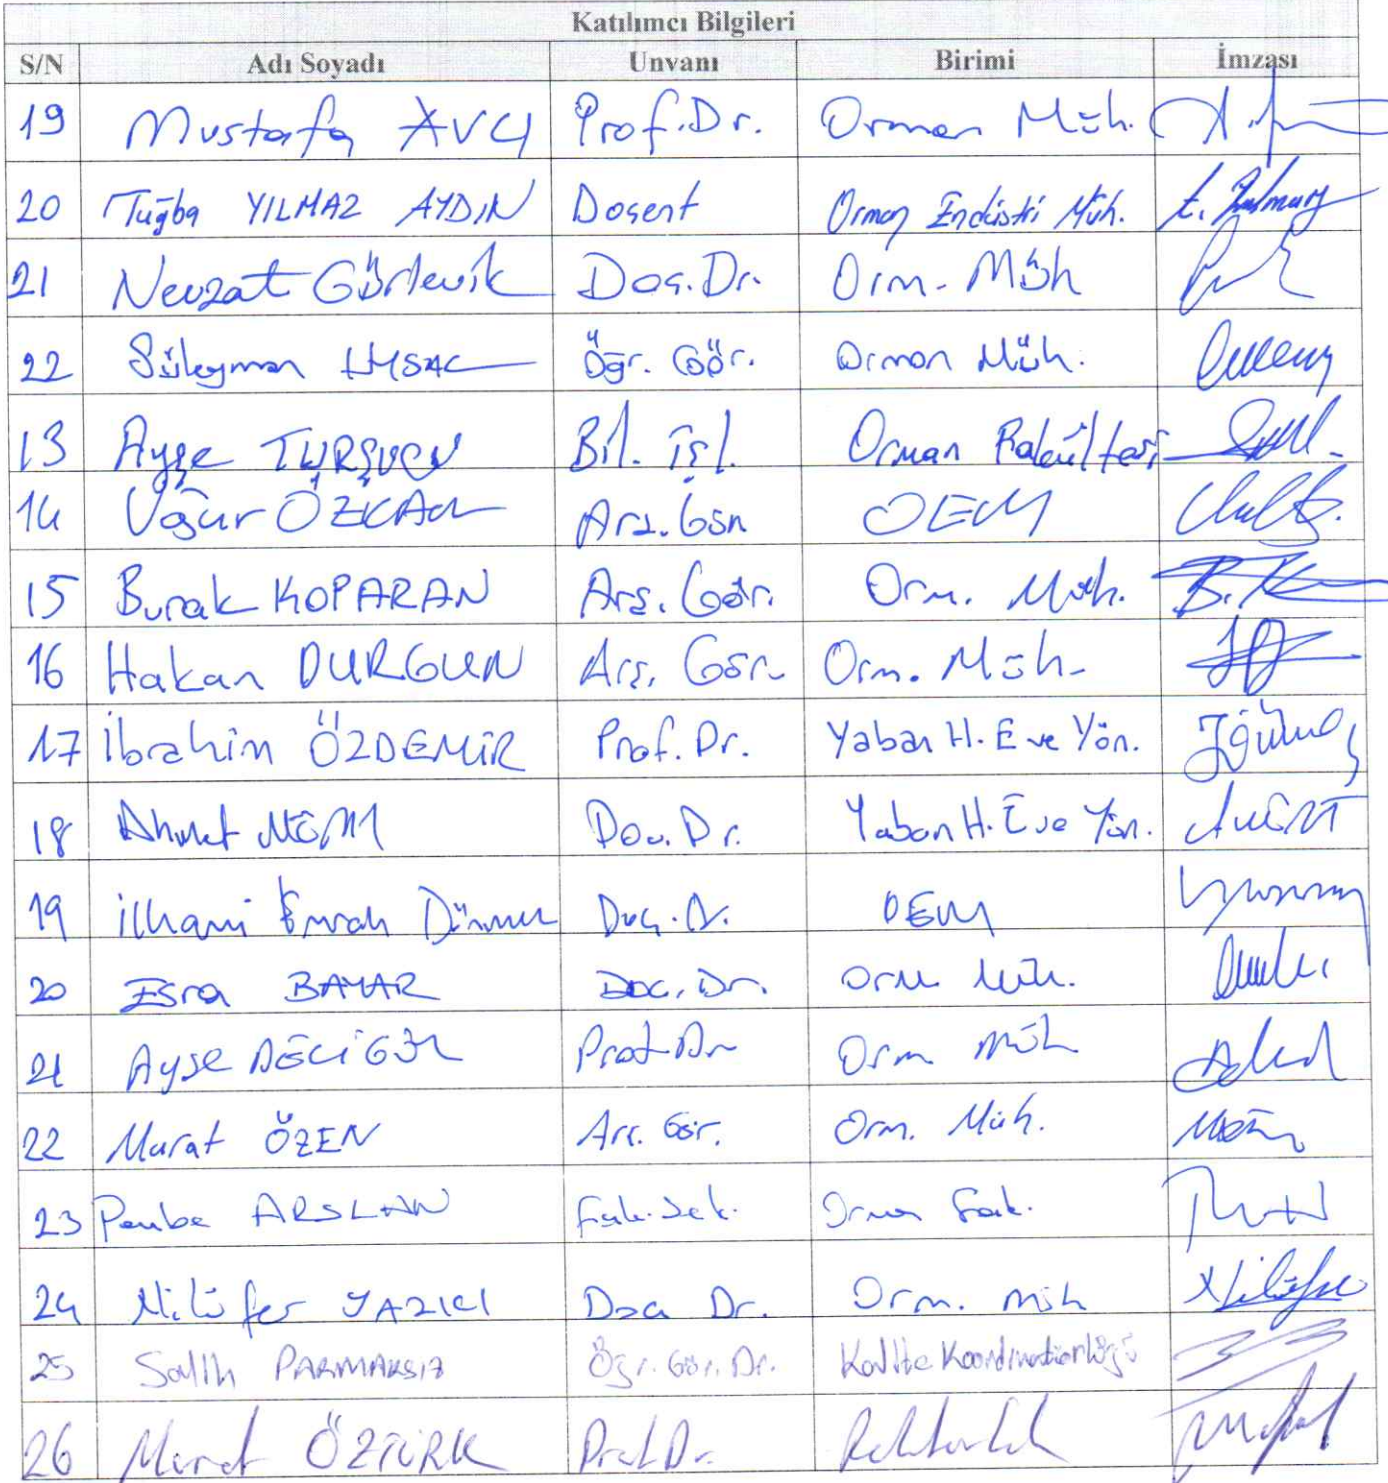 Katılımcı Bilgileri
S/N Adı Soyadı Unvanı Birimi İmzası
19 Mustafa AVCI Prof.Dr. Orman Müh.
20 Tuğba YILMAZ AYDIN Doçent Orman Endüstri Müh. t. Yılmaz
21 Nevzat Gürlevik Doç.Dr. Orm. Müh
22 Süleyman Öğr. Gör. Orman Müh.
13 Ayşe TURŞUCU Bil. İşl. Orman Fakültesi
14 Uğur ÖZKAN Arş. Gör. OEM
15 Burak KOPARAN Arş. Gör. Orm. Müh. B.K
16 Hakan DURGUN Arş. Gör. Orm. Müh.
17 İbrahim ÖZDEMİR Prof. Dr. Yaban H. E ve Yön.
18 Ahmet MERT Doç. Dr. Yaban H. E ve Yön. AMERT
19 İlhami Emrah Dönmez Doç. Dr. OEM
20 Esra BAYAR Doç. Dr. Orm. Müh.
21 Ayşe Prof. Dr Orm Müh
22 Murat ÖZEN Arş. Gör. Orm. Müh.
23 Pembe ARSLAN Fak. Sek. Orman Fak.
24 Nilüfer YAZICI Doç Dr. Orm. Müh Nilüfer
25 Salih PARMAKSIZ Öğr. Gör. Dr. Kalite Koordinatörlüğü
26 Murat ÖZTÜRK Prof.Dr. Rektörlük